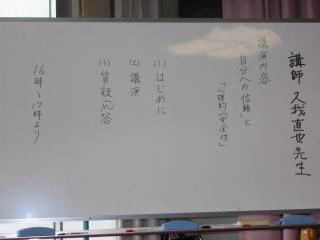 講師 久我直也先生
講演内容
「自分への信頼」と
「心理的安全性」
(1) はじめに
(2) 講演
(3) 質疑応答
16時～17時より